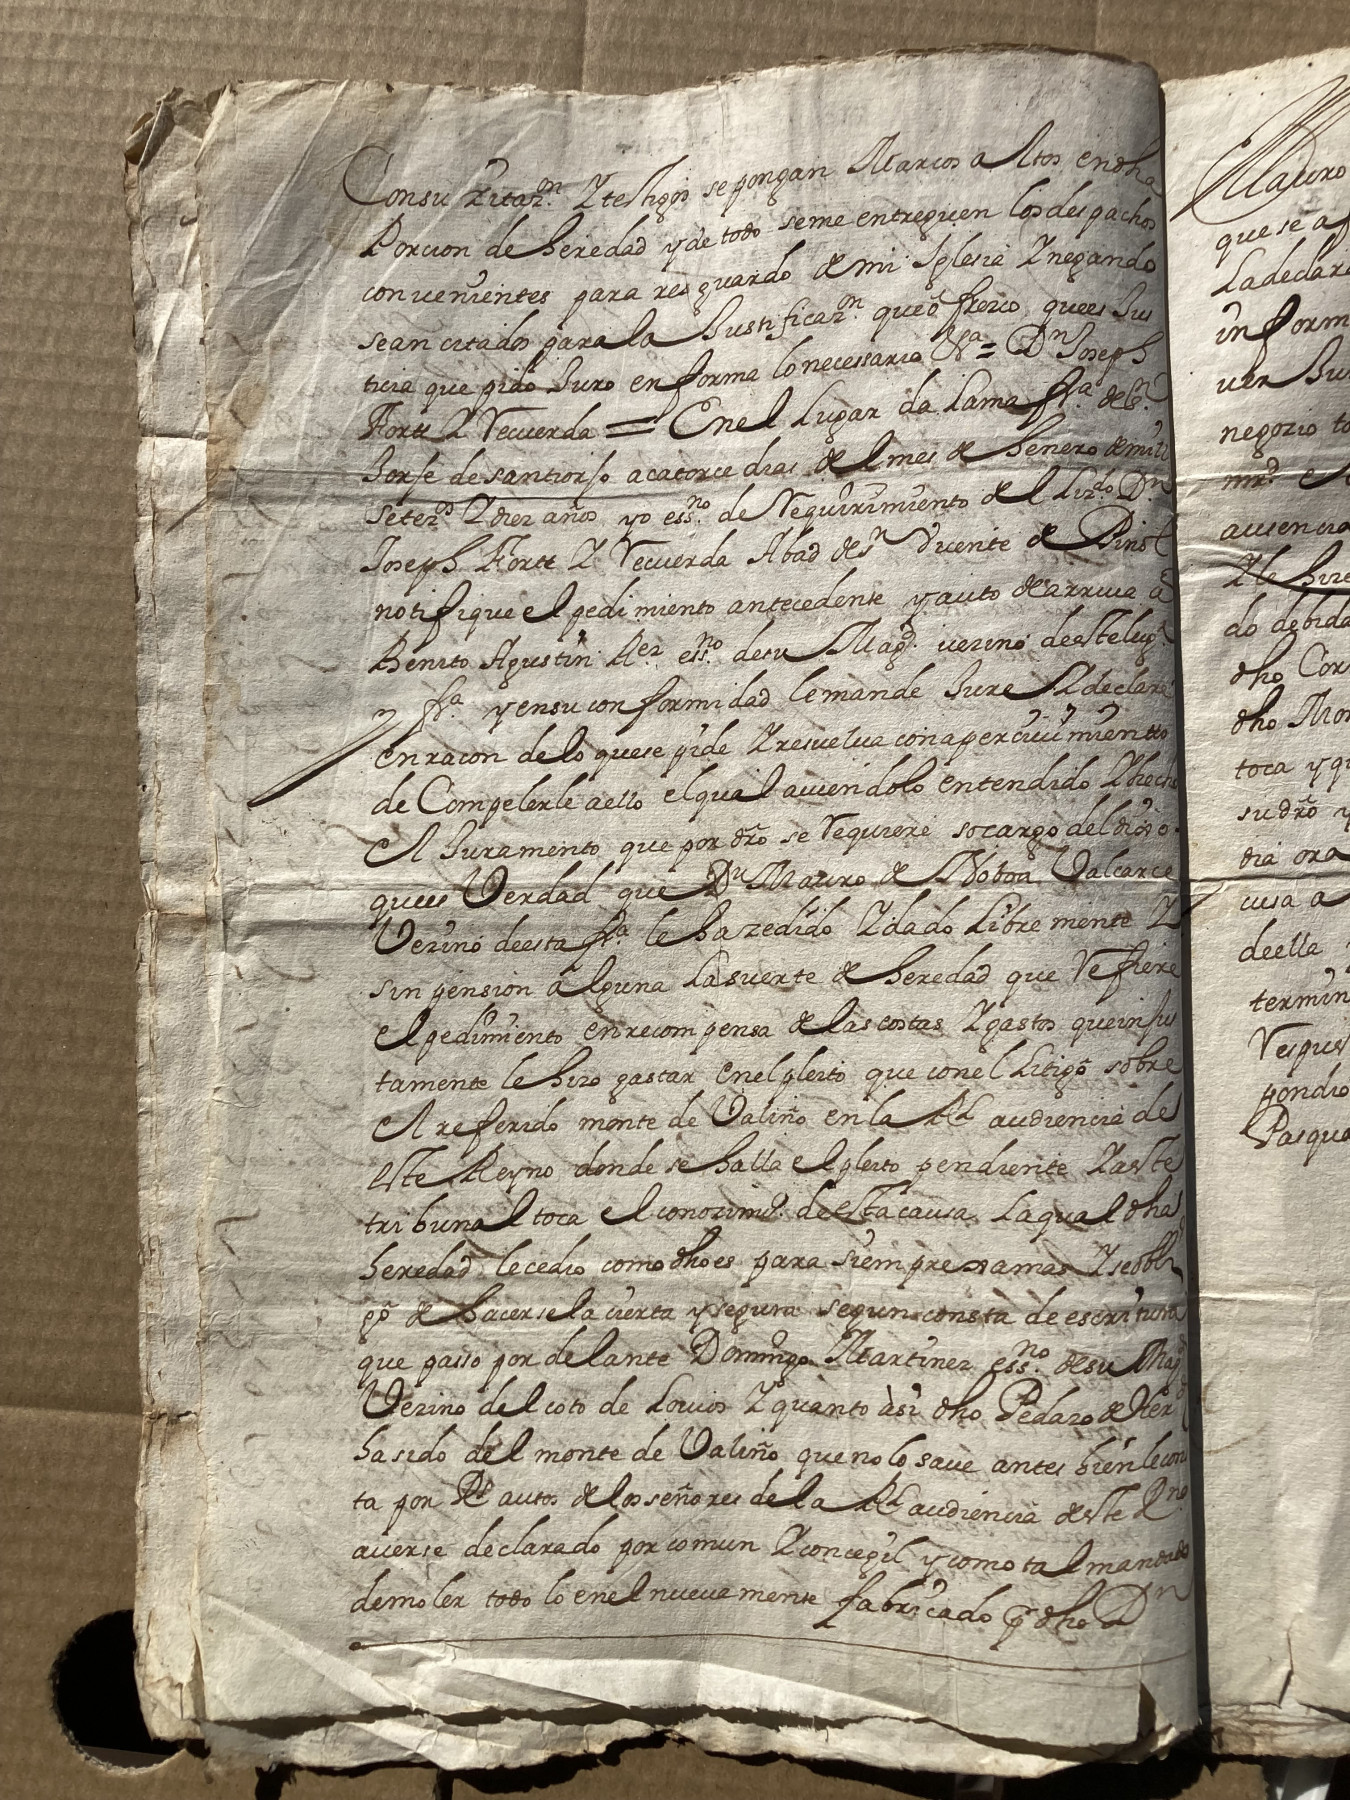 Con su zitazⁿ. Y testigos se pongan Marcos altos en dha
Porcion de heredad y de todo se me entreguen los despachos
convenientes para resguardo de mi Iglesia Y negando
sean citados para la Justificazⁿ. que ofrezco que es Jus
ticia que pido Juro en forma lo necessario Vª = Dⁿ Joseph
Fortt Y Recuerda = En el Lugar da Lama frª de sⁿ
Jorje de santiorjo a catorce dias del mes de henero de mill
setezˢ Y diez años yo essⁿᵒ. de Requirimiento del Lizᵈᵒ Dⁿ
Joseph Fortt Y Recuerda Abad de sⁿ Vicente de Pinol
notifique el pedimiento antecedente y auto de arriva a
Benito Agustin Rᵉᶻ essⁿᵒ. de su Magᵈ. vezino de este lugᵃʳ
y frª y en su conformidad le mande Jure Y declare
en racon de lo que se pide Y resuelva con apercivimiento
de Compelerle a ello el qual aviendolo entendido Y hecho
el Juramento que por dro se Requiere so cargo del dijo
que es Verdad que Dⁿ Mauro de Noboa Valcarce
Vezino de esta frª. le ha zedido Y dado Libremente Y
sin pension alguna la suerte de heredad que Refiere
el pedimiento en recompensa de las costas Y gastos que injus
tamente le hizo gastar en el pleito que con el Litigo sobre
el referido monte de Valiño en la Rˡ audiencia de
este Reyno donde se halla el pleito pendiente Y a este
tribunal toca el conozimᵗᵒ. de esta causa La qual dha
heredad le cedio como dho es para siempre xamas Y se obli
gó de hacersela cierta y segura segun consta de escritura
que passo por delante Domingo Martinez essⁿᵒ. de su Magᵈ
Vezino del coto de Lovios Y quanto a si dho Pedazo de Herᵈ
ha sido del monte de Valiño que no lo save antes bien le cons
ta por Rˢ autos de los señores de la Rˡ audiencia deste Rⁿᵒ
averse declarado por comun Y concegil y como tal mandado
demoler todo lo en el nuevamente fabricado p dho Dⁿ